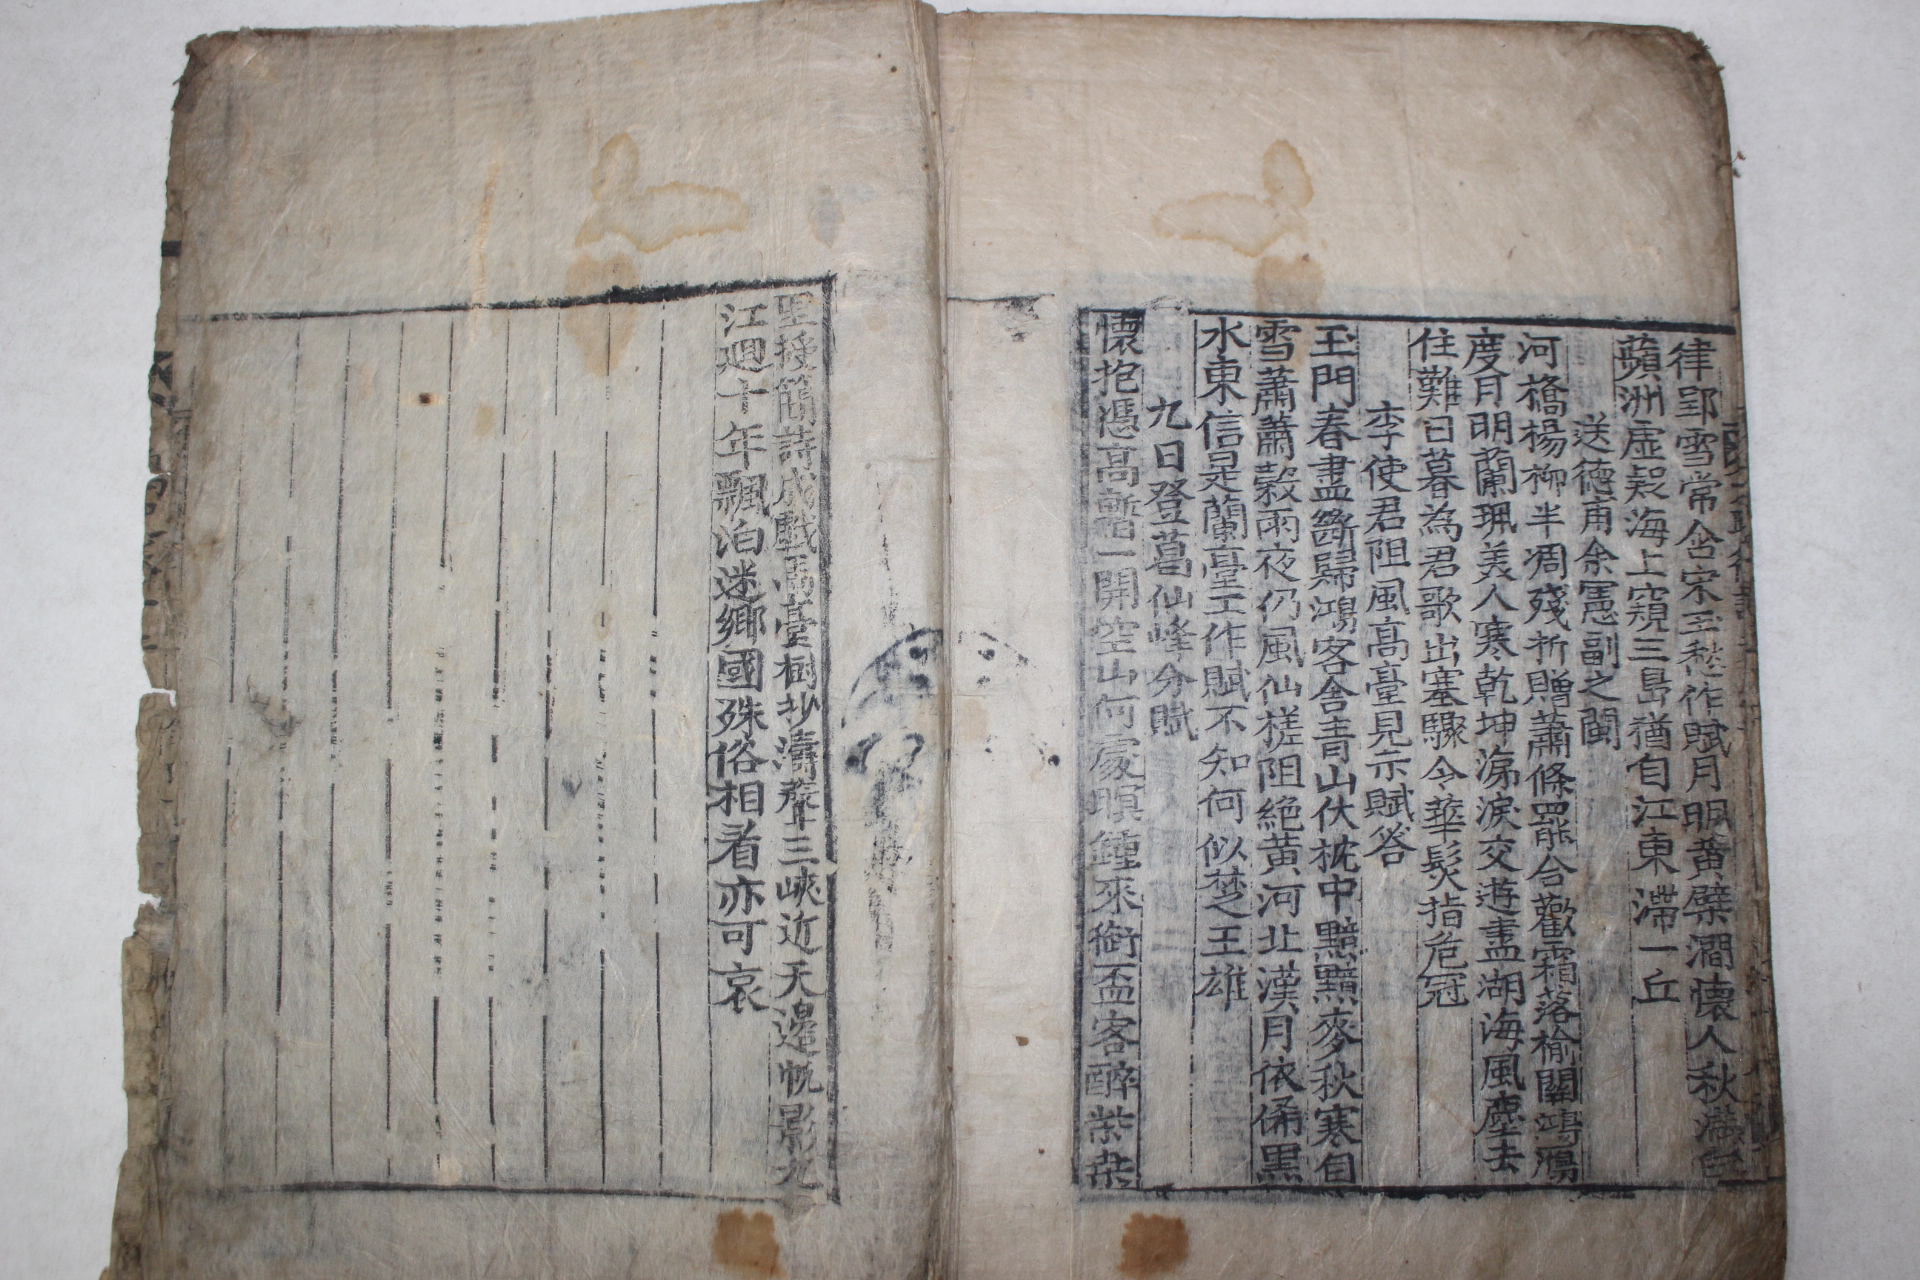 律郢雪常含宋玉愁作賦月明黃檗澗懷人秋滿白
蘋洲虛疑海上窺三島猶自江東滯一丘
送德甫余憲副之閩
河橋楊柳半凋殘折贈蕭條罷合歡霜落楡關鴻鴈
度月明蘭珮美人寒乾坤涕淚交遊盡湖海風塵去
住難日暮為君歌出塞驟令華髮指危冠
李使君阻風高臺見示賦答
玉門春盡斷歸鴻客舍青山伏枕中黯黯麥秋寒自
雪蕭蕭穀雨夜仍風仙槎阻絕黃河北漢月依俙黑
水東信是蘭臺工作賦不知何似楚王雄
九日登葛仙峰分賦
懷抱憑高暫一開空山何處暝鐘來銜盃客醉茱萸
里授簡詩成戲馬臺樹抄濤聲三峽近天邊帆影九
江迴十年飄泊迷鄉國殊俗相看亦可哀